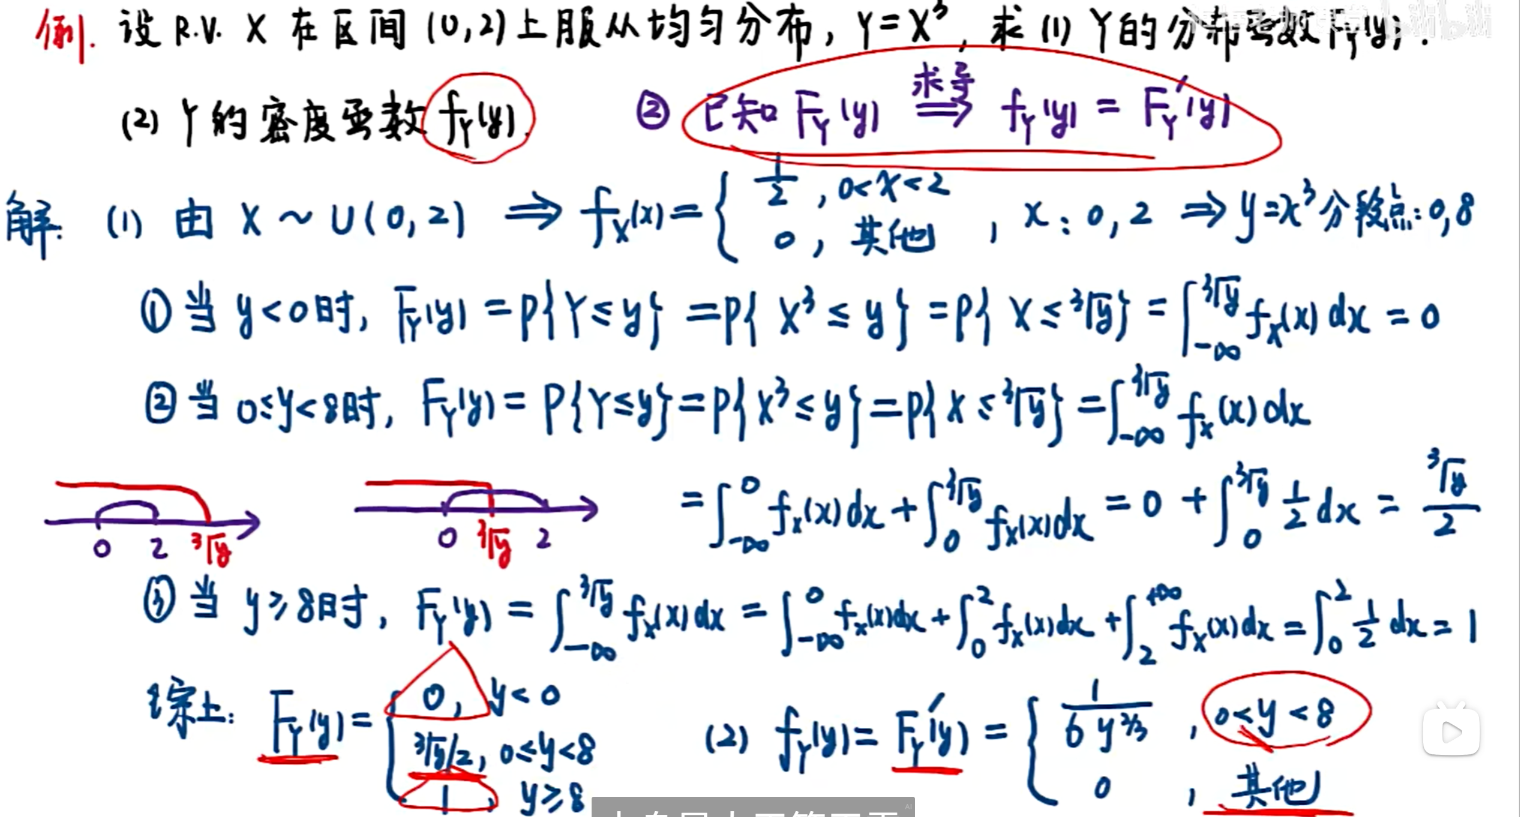 例. 设 R.V. X 在区间 (0,2) 上服从均匀分布, Y=X³, 求 (1) Y的分布函数F_Y(y).
(2) Y的密度函数 f_Y(y). ② 已知 F_Y(y) 求导⟹ f_Y(y) = F_Y'(y)
解: (1) 由 X ~ U(0,2) ⟹ f_X(x) = { 1/2, 0<x<2 ; 0, 其他 , x: 0, 2 ⟹ y=x³ 分段点: 0,8
① 当 y<0时, F_Y(y) = P{Y≤y} = P{X³≤y} = P{X≤∛y} = ∫_{-∞}^{∛y} f_X(x) dx = 0
② 当 0≤y<8时, F_Y(y) = P{Y≤y} = P{X³≤y} = P{X≤∛y} = ∫_{-∞}^{∛y} f_X(x) dx
= ∫_{-∞}^{0} f_X(x) dx + ∫_{0}^{∛y} f_X(x) dx = 0 + ∫_{0}^{∛y} 1/2 dx = ∛y/2
0 2 ∛y
0 ∛y 2
③ 当 y≥8时, F_Y(y) = ∫_{-∞}^{∛y} f_X(x) dx = ∫_{-∞}^{0} f_X(x) dx + ∫_{0}^{2} f_X(x) dx + ∫_{2}^{+∞} f_X(x) dx = ∫_{0}^{2} 1/2 dx = 1
综上: F_Y(y) = { 0, y<0 ; ∛y/2, 0≤y<8 ; 1, y≥8
(2) f_Y(y) = F_Y'(y) = { 1/(6y^{2/3}), 0<y<8 ; 0, 其他